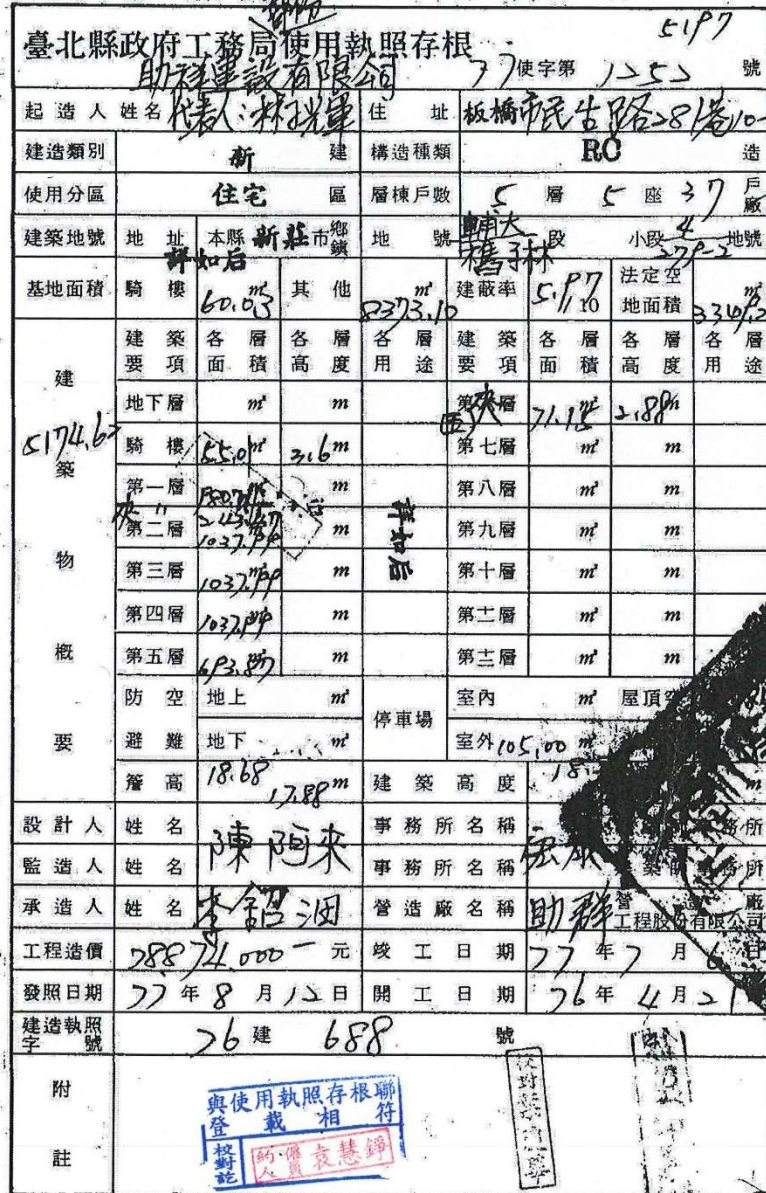 部份
5197
臺北縣政府工務局使用執照存根
助祥建設有限公司 77使字第 1252 號
起造人 姓名 代表人：林 住址 板橋市民生路281巷10-
建造類別 新 建 構造種類 RC 造
使用分區 住宅 區 層棟戶數 5 層 5 座 37 戶廠
建築地號 地址 本縣 新莊 市鄉鎮 地號 輔大 段 小段 4 地號
詳如后 278-2
基地面積 騎樓 60.03 m² 其他 8373.10 m² 建蔽率 5.97/10 法定空地面積 3349.2 m²
建築物概要 建築要項 各層面積 各層高度 各層用途 建築要項 各層面積 各層高度 各層用途
地下層 m² m 夾層 71.15 2.88m
5174.62
騎樓 55.01 m² 3.6m 第七層 m² m
第一層 m 第八層 m² m
夾 〃 243.47
第二層 1037.99 m 詳如后 第九層 m² m
第三層 1037.99 m² m 第十層 m² m
第四層 1037.99 m² m 第十一層 m² m
第五層 693.87 m² m 第十二層 m² m
防空避難 地上 m² 停車場 室內 m² 屋頂
地下 m² 室外 105.00 m²
簷高 18.68 17.88m 建築高度 18 m
設計人 姓名 陳阿來 事務所名稱 務所
監造人 姓名 事務所名稱 事務所
承造人 姓名 李 營造廠名稱 助群 營造廠 工程股份有限公司
工程造價 78874,000一 元 竣工日期 77 年 7 月 6 日
發照日期 77 年 8 月 12 日 開工日期 76 年 4 月 21
建造執照字號 76 建 688 號
附註
與使用執照存根聯
登載相符
校對訖 約僱人員 袁慧錚